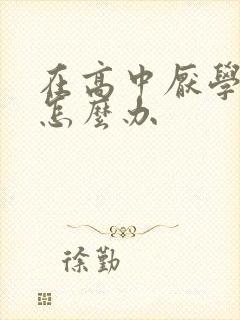 在高中厌學
怎麼办
徐勤